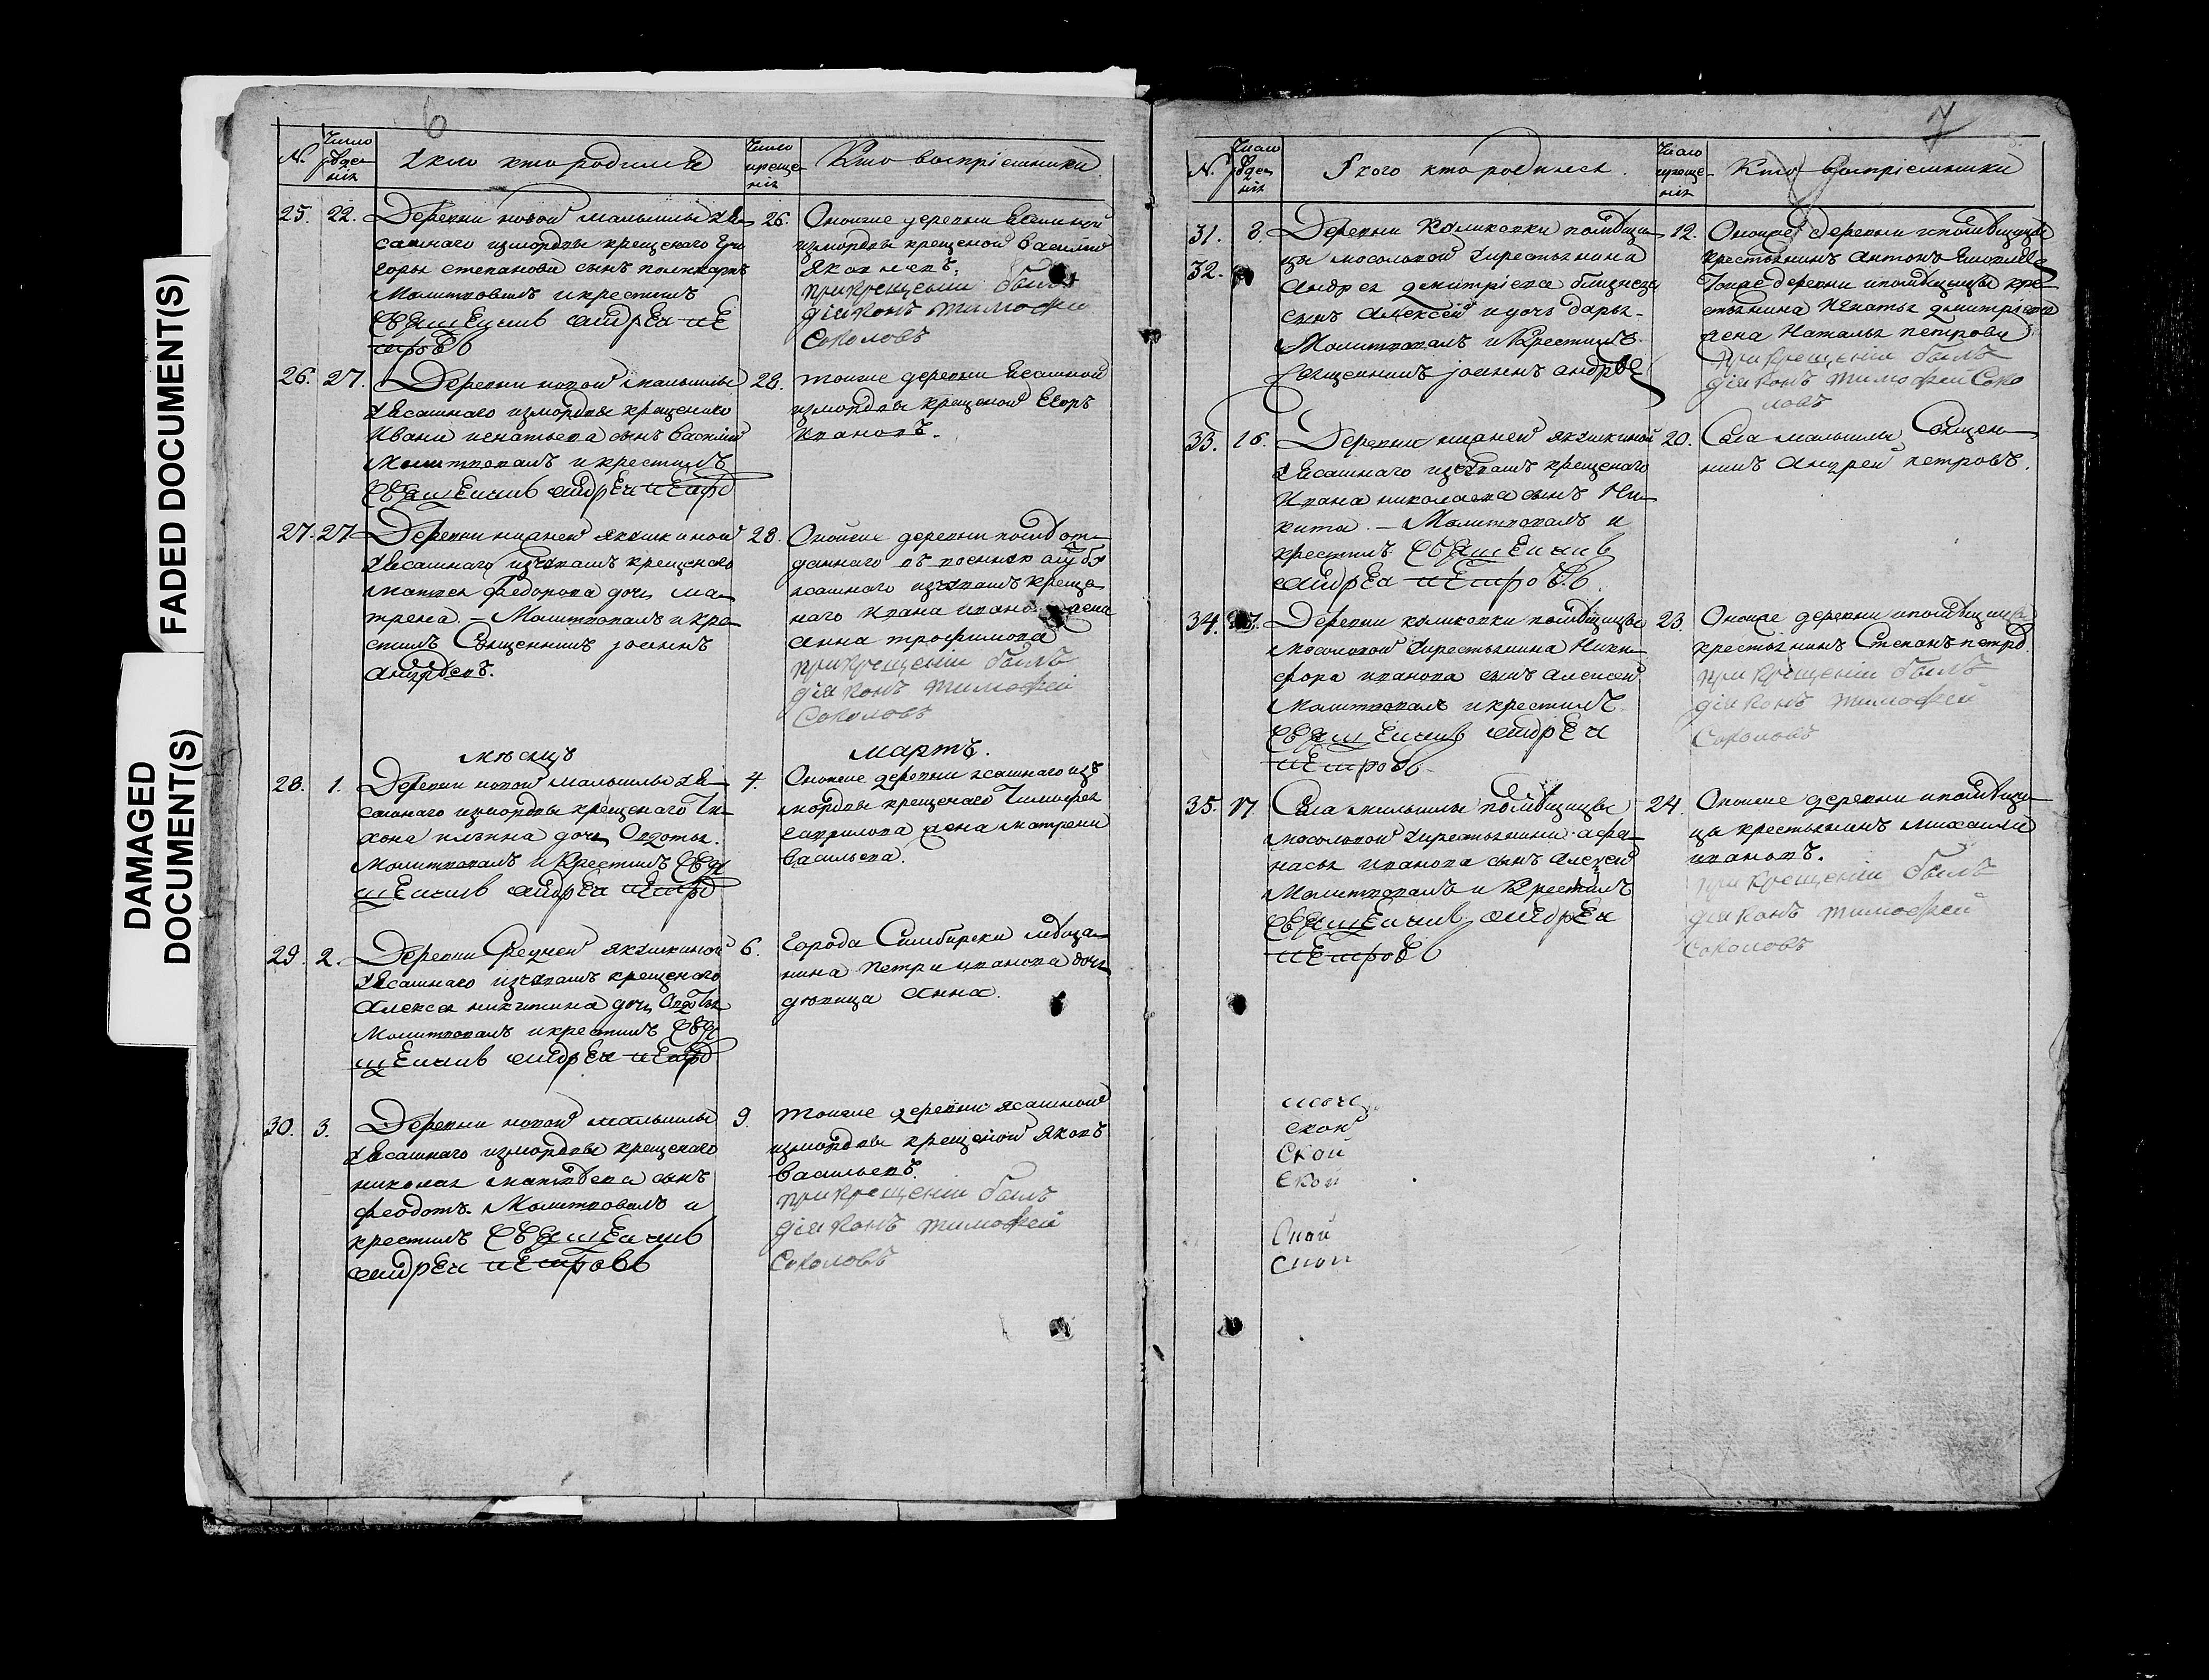 FADED DOCUMENT(S)
DAMAGED
DOCUMENT(S)
6
№
Число
рожде-
нія
У кого кто родился
Число
креще-
нія
Кто воспріемники
25. 22. Деревни новой малыклы у Яса-
сашнаго измордвы крещенаго
Егоры степанова сынъ поликарпъ
Молитвовалъ и крестилъ
священникъ андрей пе
тровъ
26. Оноиже деревни Ясашной
измордвы крещеной василей
Яковлевъ.
при крещеніи былъ
діяконъ тимофеи
Соколовъ
26. 27. Деревни новой малыклы
у Ясашнаго измордвы крещенаго
Ивана игнатьева сынъ василий
Молитвовалъ и крестилъ
священникъ андрей петро
28. тоиже деревни Ясашной
измордвы крещеной Егоръ
ивановъ.
27. 27. Деревни нижней якушкиной
у Ясашнаго изчувашъ крещенаго
матвея федорова дочь ма-
трена. – Молитвовалъ и кре-
стилъ Священникъ іоаннъ
андреевъ.
28. Оноиже деревни
даннаго въ
ясашнаго изчувашъ креще-
наго ивана жена
анна трофимова
при крещеніи былъ
діяконъ тимофей
Соколовъ
мѣсяцъ
мартъ.
28. 1. Деревни новой малыклы у Я-
сашнаго измордвы крещенаго Ти-
хона дочь Овдотья.
Молитвовалъ и Крестилъ Свя
щенникъ андрей петро
4. Оноиже деревни ясашнаго изъ
мордвы крещенаго Тимофея
гаврилова жена матрена
васильева.
29. 2. Деревни якушкиной
у Ясашнаго изчувашъ крещенаго
Алексея никитина дочь
Молитвовалъ и крестилъ Свя
щенникъ андрей петро
6. Города Симбирска мѣща-
нина Петра иванова дочь
дѣвица Анна.
30. 3. Деревни новой малыклы
у Ясашнаго измордвы крещенаго
николая матвеева сынъ
феодотъ. Молитвовалъ и
крестилъ священникъ
андрей петровъ
9. тоиже деревни ясашной
измордвы крещеной яковъ
васильевъ.
при крещеніи былъ
діяконъ тимофей
Соколовъ
7
№
Число
рожде-
нія
У кого кто родился.
Число
креще-
нія
Кто воспріемники
31. 8. Деревни Куликовки помѣщи-
32. цы мосоловой у крестьянина
Андрея димитріева близнецы
сынъ Алексей и дочь дарья.
Молитвовалъ и Крестилъ
Священникъ іоаннъ андрее
12. Оноиже деревни и помѣщицы
крестьянинъ Антонъ
Тоиже деревни и помѣщицы кре-
стьянина Игнатья димитріева
жена Наталья петрова
при крещеніи былъ
діяконъ тимофей Соко
ловъ
33. 16. Деревни нижней якушкиной
у Ясашнаго изчувашъ крещенаго
Ивана николаева сынъ Ни-
кита. – Молитвовалъ и
крестилъ священникъ
андрей петровъ.
20. Села малыклы Священ-
никъ Андрей петровъ.
34. Деревни куликовки помѣщицы
мосоловой у крестьянина Ники-
фора иванова сынъ алексей
Молитвовалъ и крестилъ
священникъ андрей
петровъ
23. Оноиже деревни и помѣщицы
крестьянинъ Степанъ петро
при крещеніи былъ
діяконъ тимофей
Соколовъ
35. 17. Села малыклы помѣщицы
мосоловой у крестьянина афа-
насья иванова сынъ Алексей
Молитвовалъ и Крестилъ
священникъ андрей
петровъ
24. Оноиже деревни и помѣщи-
цы крестьянинъ михаила
ивановъ.
при крещеніи былъ
діяконъ тимофей
Соколовъ
ской
ской
ской